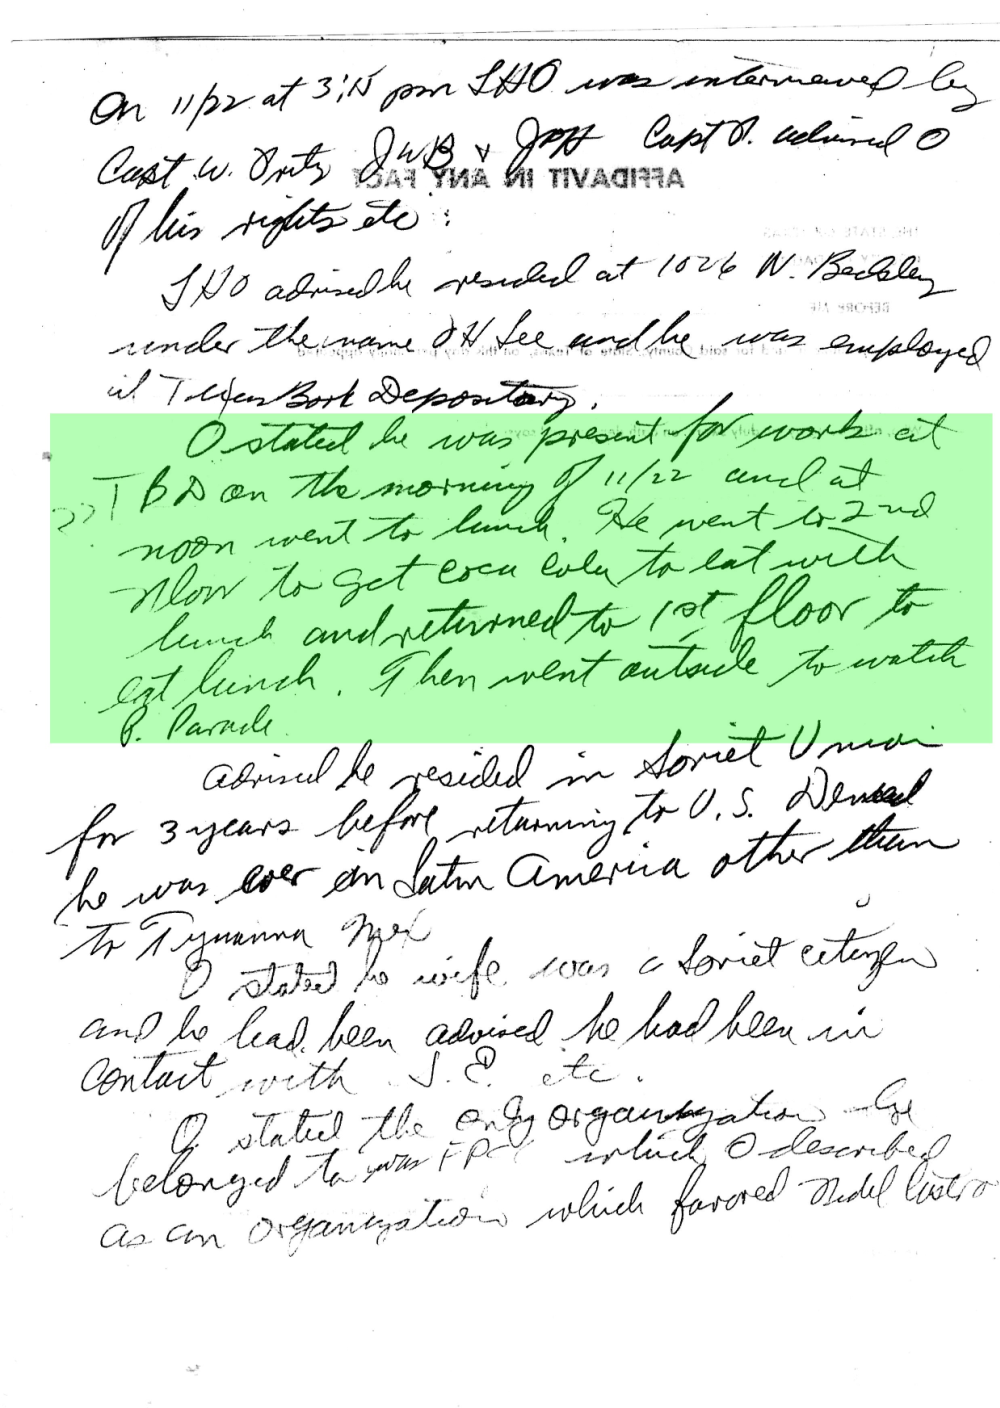 On 11/22 at 3:15 pm LHO was interviewed by
Capt. W. Fritz JWB & JPH Capt F. advised O
AFFIDAVIT IN ANY FACT
of his rights etc :
LHO advised he resided at 1026 N. Beckley
BEFORE ME
under the name OH Lee and he was employed
at Texas Book Depository.
O stated he was present for work at
TBD on the morning of 11/22 and at
noon went to lunch. He went to 2nd
floor to get coca cola to eat with
lunch and returned to 1st floor to
eat lunch. Then went outside to watch
P. Parade
advised he resided in Soviet Union
for 3 years before returning to U.S. Denied
he was ever in Latin America other than
to Tijuanna Mex
O stated he wife was a Soviet citizen
and he had been advised he had been in
contact with S.E. etc.
O stated the only organization he
belonged to was FPC which O described
as an organization which favored Fidel Castro